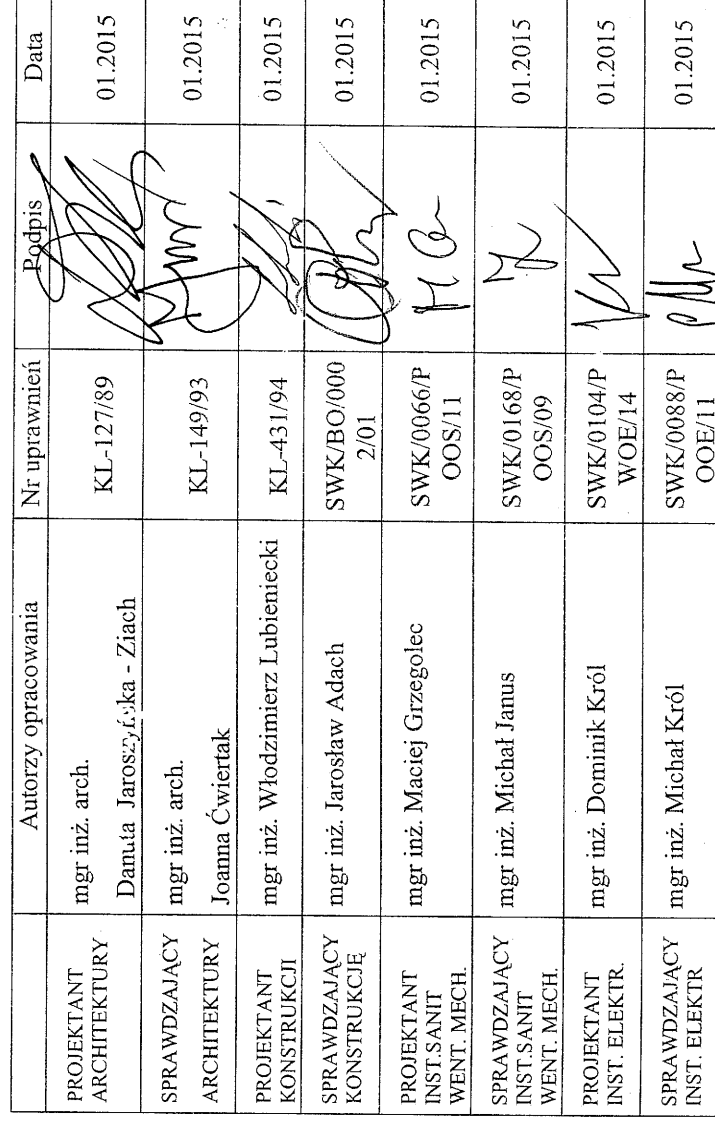 Autorzy opracowania Nr uprawnień Podpis Data
PROJEKTANT
ARCHITEKTURY
mgr inż. arch.
Danuta Jaroszyńska - Ziach
KL-127/89
01.2015
SPRAWDZAJĄCY
ARCHITEKTURY
mgr inż. arch.
Joanna Ćwiertak
KL-149/93
01.2015
PROJEKTANT
KONSTRUKCJI
mgr inż. Włodzimierz Lubieniecki
KL-431/94
01.2015
SPRAWDZAJĄCY
KONSTRUKCJĘ
mgr inż. Jarosław Adach
SWK/BO/000
2/01
01.2015
PROJEKTANT
INST.SANIT
WENT. MECH.
mgr inż. Maciej Grzegolec
SWK/0066/P
OOS/11
01.2015
SPRAWDZAJĄCY
INST.SANIT
WENT. MECH.
mgr inż. Michał Janus
SWK/0168/P
OOS/09
01.2015
PROJEKTANT
INST. ELEKTR.
mgr inż. Dominik Król
SWK/0104/P
WOE/14
01.2015
SPRAWDZAJĄCY
INST. ELEKTR
mgr inż. Michał Król
SWK/0088/P
OOE/11
01.2015